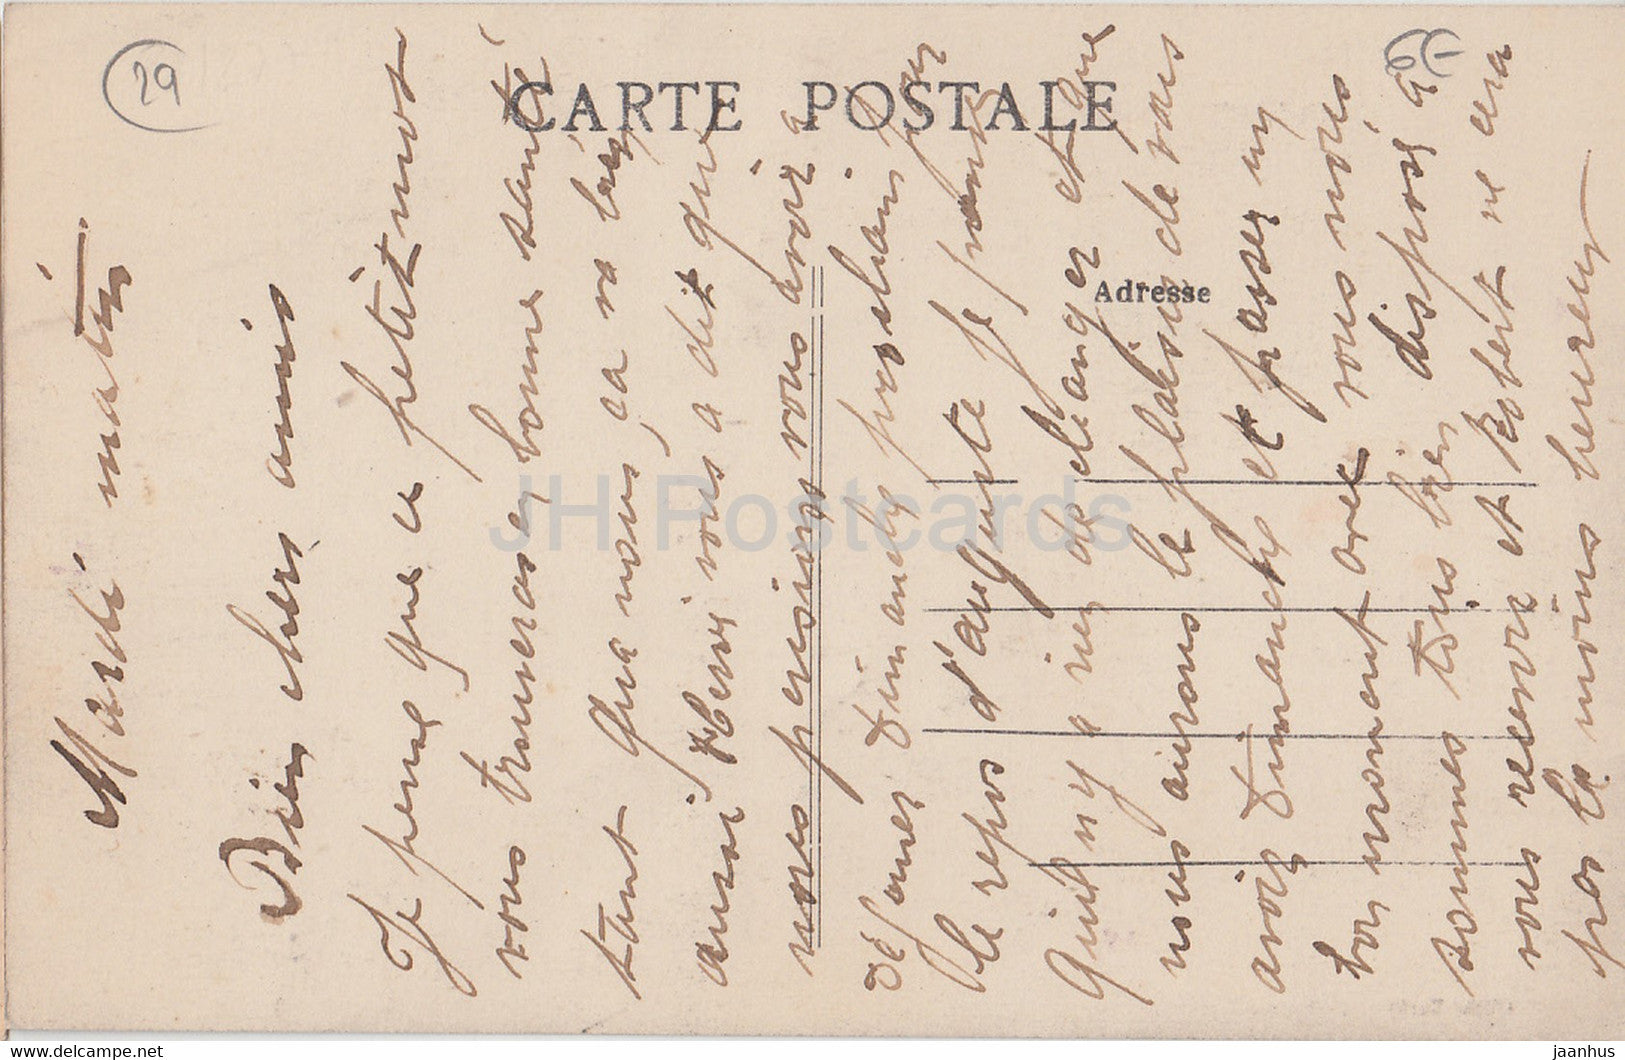 29
CARTE POSTALE
Adresse
Mardi matin
Bien chers amis
Je pense que ce petit mot
vous trouveras en bonne santé
tant qu'a nous, ça va bien
aussi Henri vous a dit que
nous pensions vous avoir a
déjeuner dimanche prochain pour
le repos d'auguste je pense
qu'il n'y a rien de changer et que
nous aurons le plaisir de vous
avoir dimanche et passer un
bon moment avec vous nous
sommes tous bien disposé a
vous recevoir et Robert ne sera
pas le moins heureux
JH Postcards
delcampe.net
jaanhus